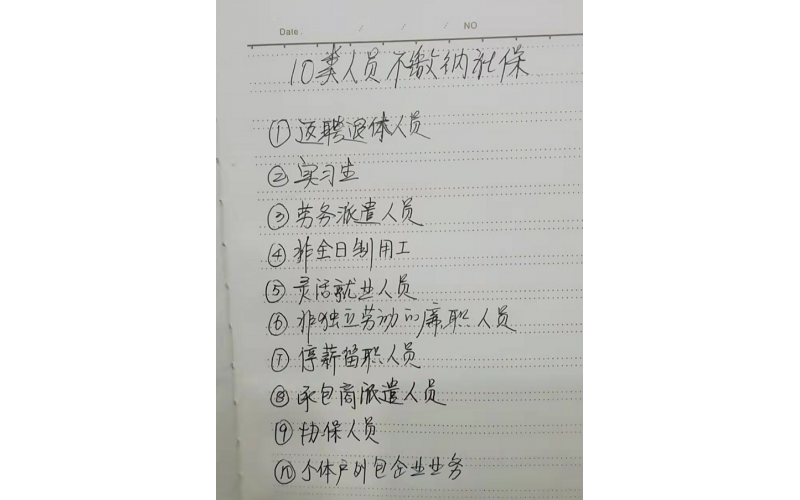 Date. / / / NO
10类人员不缴纳社保
①返聘退休人员
②实习生
③劳务派遣人员
④非全日制用工
⑤灵活就业人员
⑥非独立劳动的兼职人员
⑦停薪留职人员
⑧承包商派遣人员
⑨协保人员
⑩个体户外包企业业务